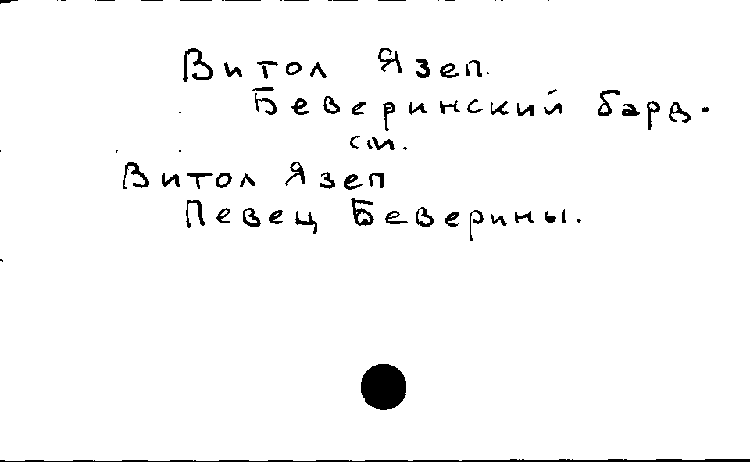 Витол Язеп.
Беверинский бард.
см.
Витол Язеп
Певец Беверины.